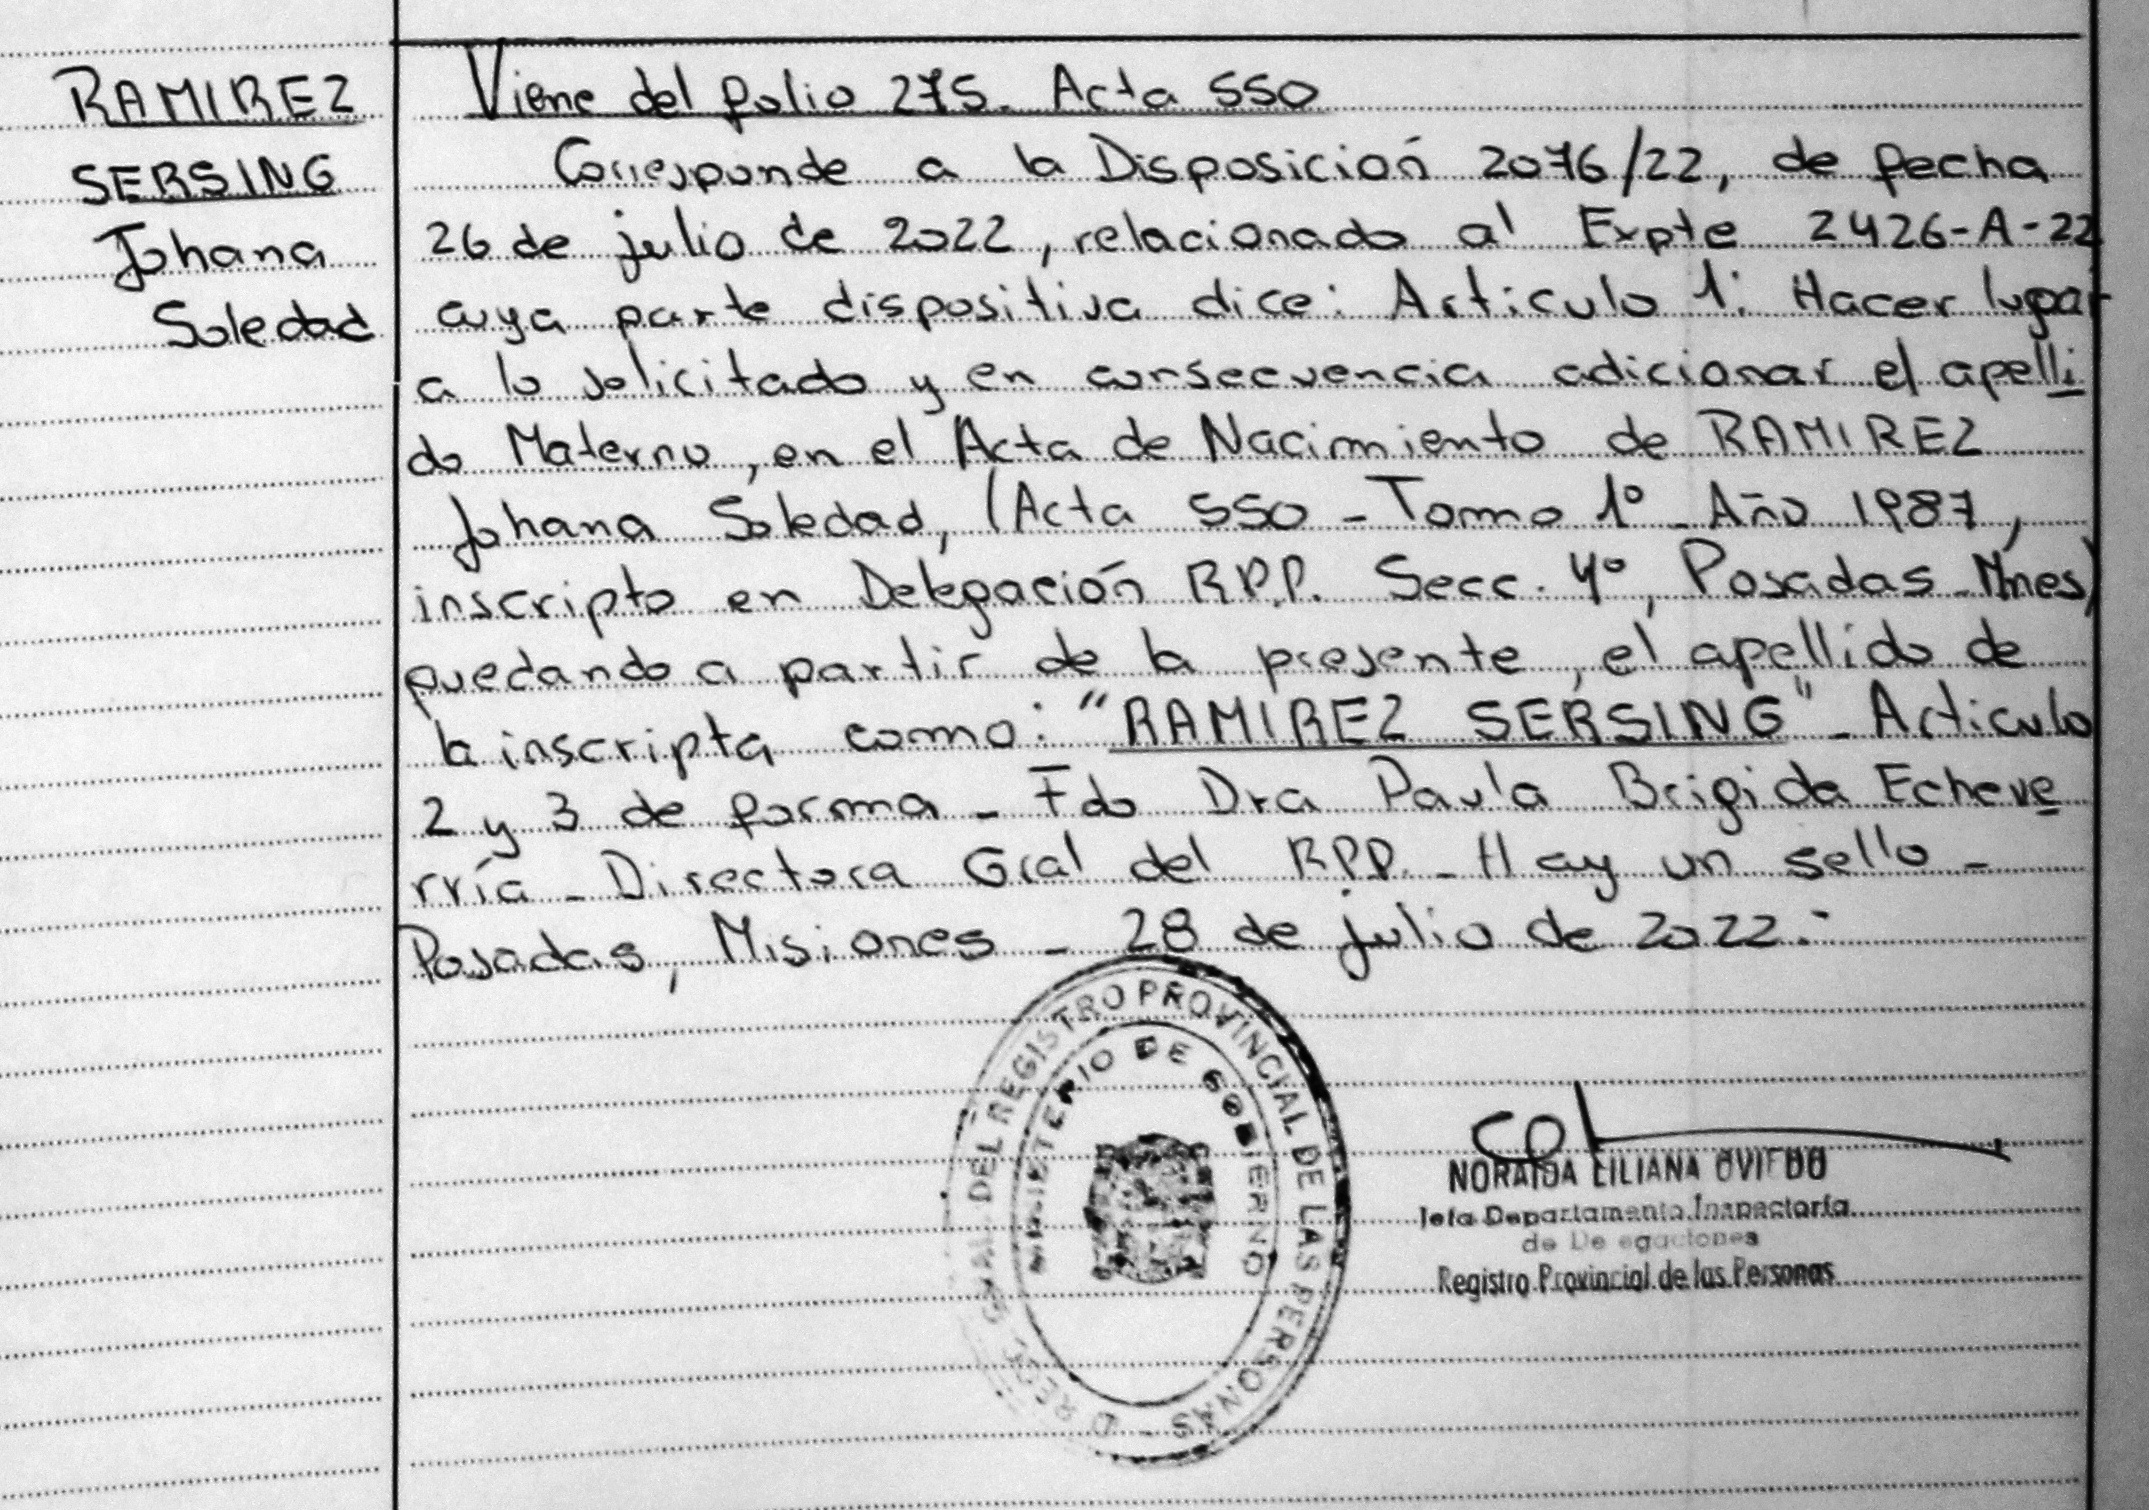 RAMIREZ
SERSING
Johana
Soledad
Viene del folio 275. Acta 550
Corresponde a la Disposición 2076/22, de fecha
26 de julio de 2022, relacionado al Expte 2426-A-22
cuya parte dispositiva dice: Articulo 1: Hacer lugar
a lo solicitado y en consecuencia adicionar el apelli
do Materno, en el Acta de Nacimiento de RAMIREZ
Johana Soledad, (Acta 550 - Tomo 1º - Año 1987,
inscripto en Delegación R.P.P. Secc. 4º, Posadas - Mnes)
quedando a partir de la presente, el apellido de
la inscripta como: "RAMIREZ SERSING" - Articulo
2 y 3 de forma - Fdo Dra Paula Brigida Echeve
rría - Directora Gral del R.P.P. - Hay un sello -
Posadas, Misiones - 28 de julio de 2022.-
DEL REGISTRO PROVINCIAL DE LAS PERSONAS
MINISTERIO DE GOBIERNO
NORAIDA LILIANA OVIEDO
Jefa Departamento Inspectoría
de Delegaciones
Registro Provincial de las Personas